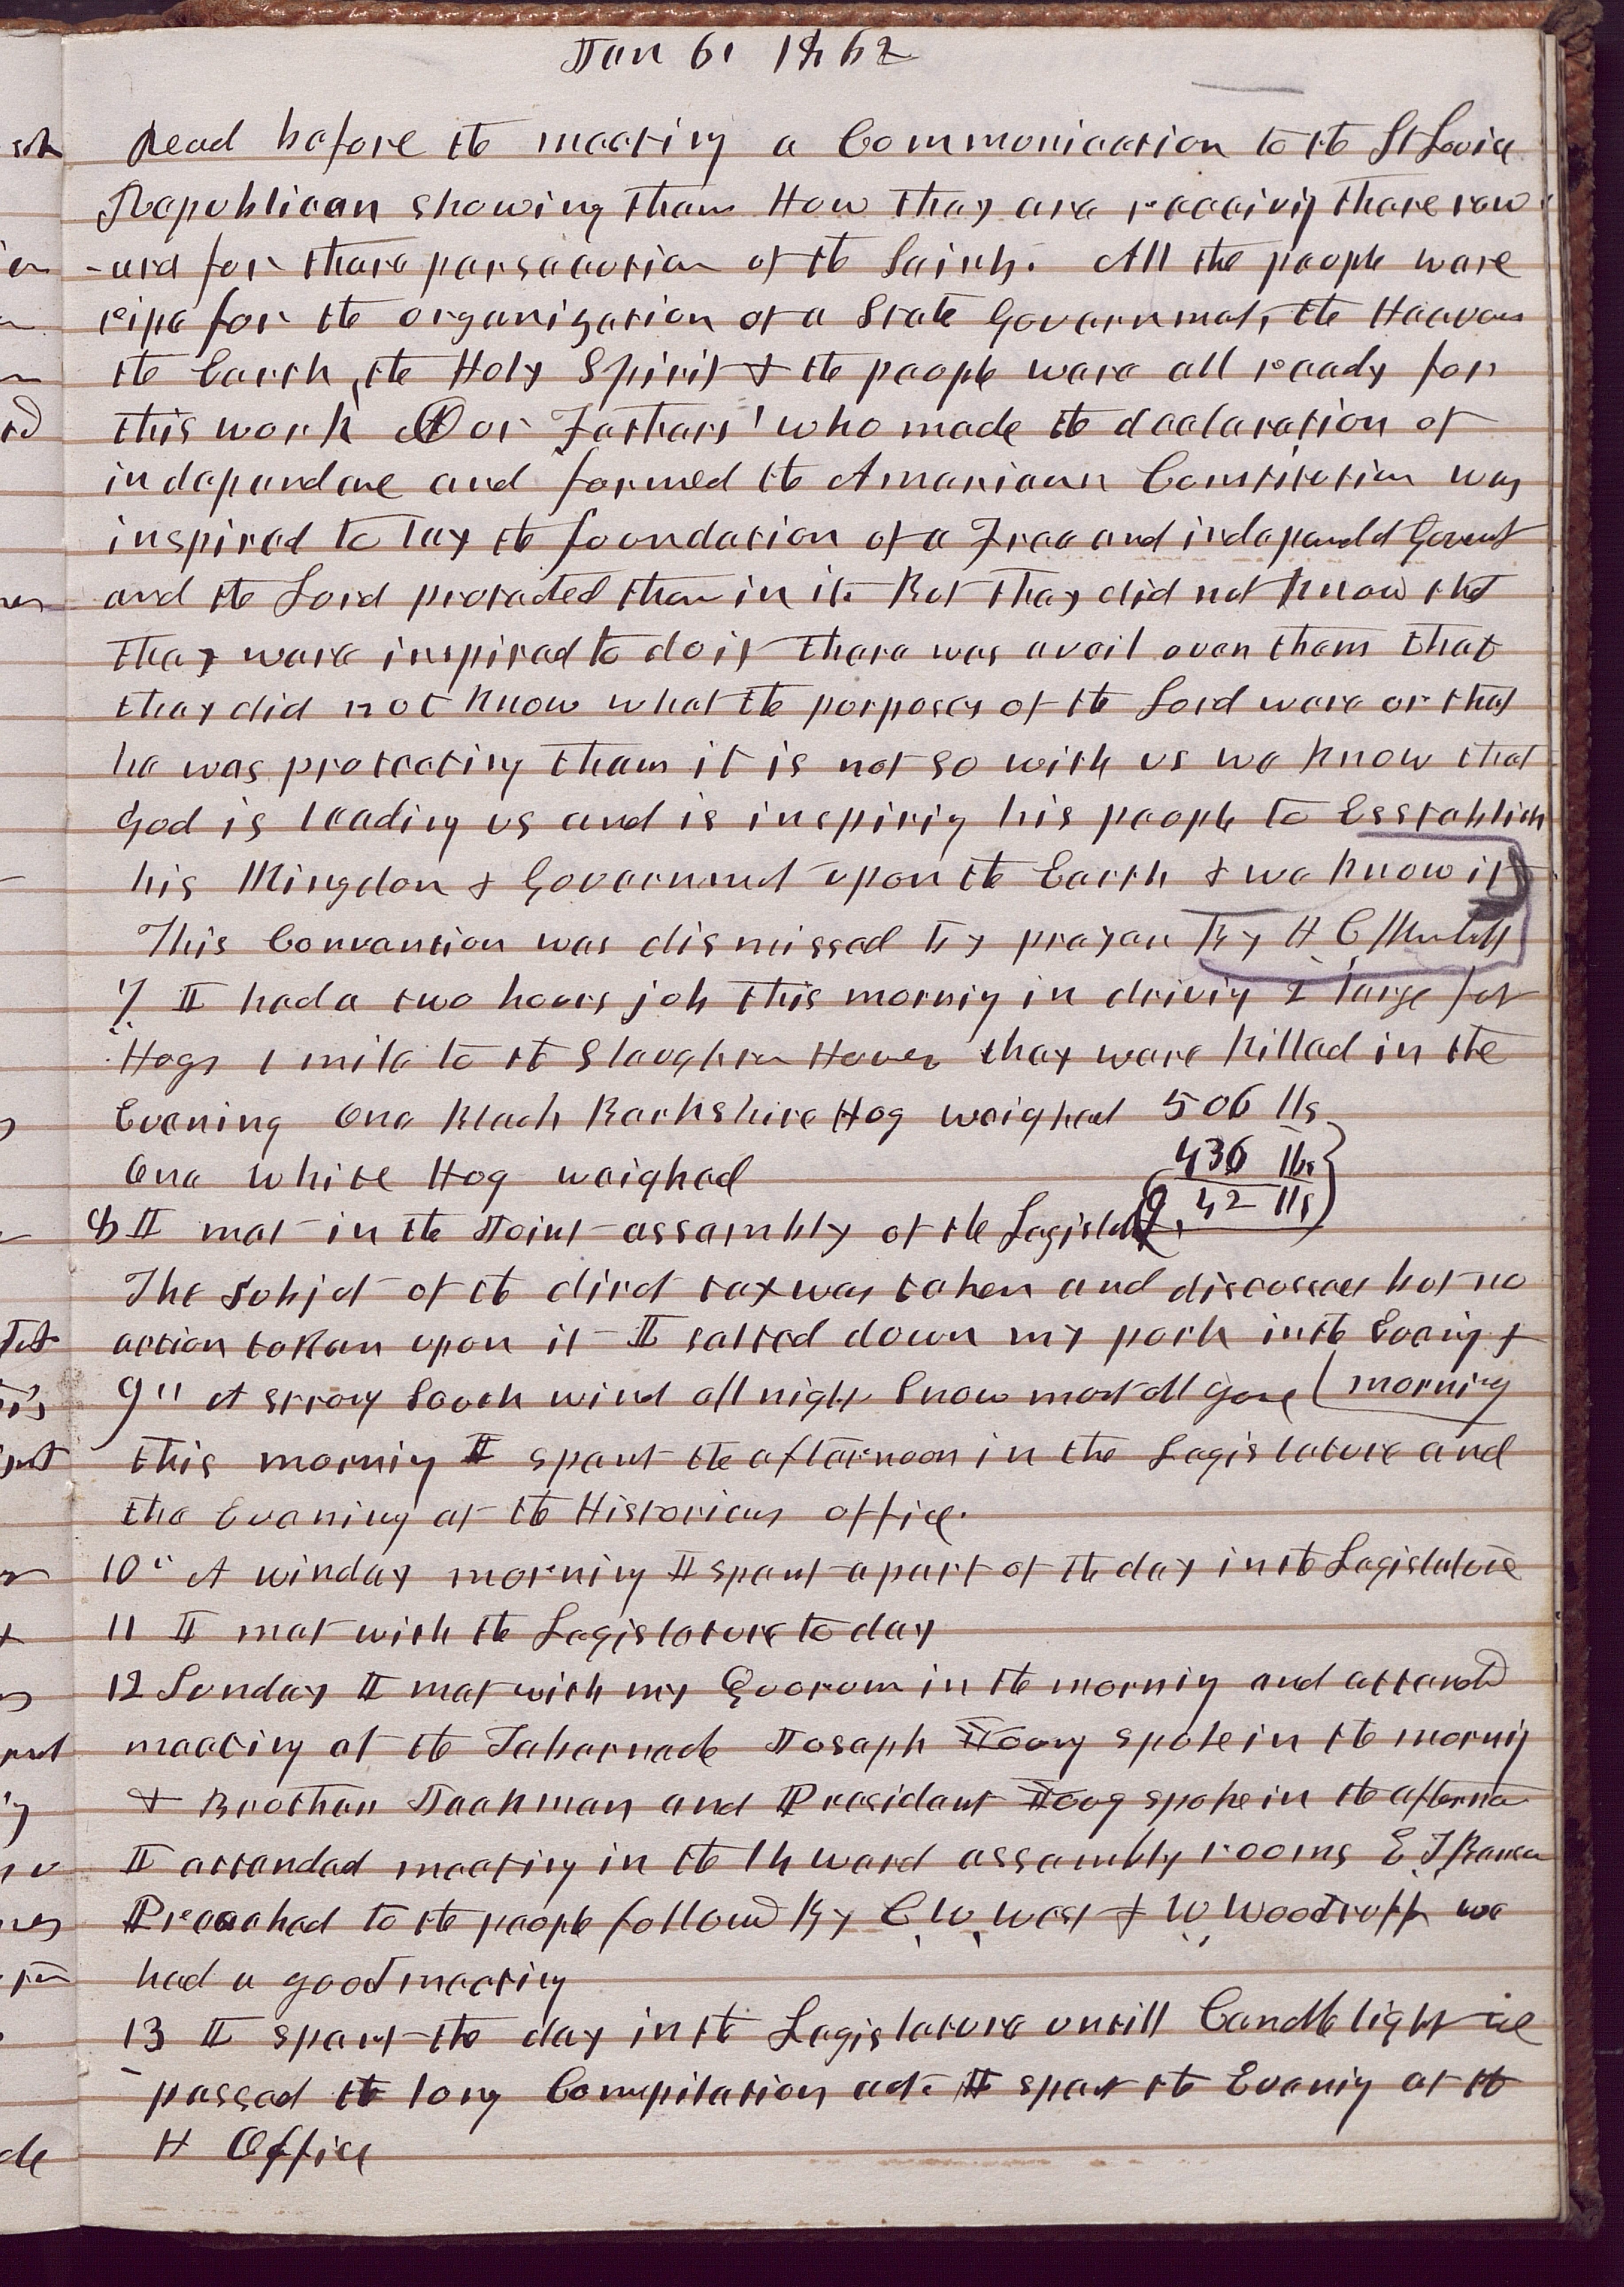 Jan 6, 1862
Read before the meeting a Communication to the St Louis
Republican showing them How they are receiving there rew
-ard for there persecution of the Saints. All the people were
ripe for the organization of a State Governmet, the Heavens
the Earth, the Holy Spirit & the people were all ready for
this work Our Fathers' who made the declaration of
independance and formed the American Constitution was
inspired to lay the foundation of a Free and independet Govmt
and the Lord protected them in it. But they did not know that
they were inspired to do it there was avail over them that
they did not know what the purposes of the Lord were or that
he was protecting them it is not so with us we know that
God is leading us and is inspiring his people to Esstablish
his Kingdom & Governmet upon the Earth & we know it
This Convention was dismissed by prayer By H C Kimball
7 I had a two hours job this morning in driving 2 large fat
Hogs 1 mile to the Slaughter House they were killed in the
Evening One Black Barkshire Hog weighed 506 lbs
One White Hog weighed 436 lbs
942 lbs
8 I met in the Joint assembly of the Legislature
The Subjet of the diret tax was taken and discussed but no
action taken upon it I salted down my pork in the Evenig &
morning
9" A strong South wind all night Snow most all gone
this morning I spent the afternoon in the Legislature and
the Evening at the Historians office.
10" A winday morning I spent a part of the day in the Legislature
11 I met with the Legislature to day
12 Sunday I met with my Quorum in the morning and attend
meeting at the Tabernacle Joseph Young spoke in the mornig
& Brother Taakman and President Young spoke in the afternoon
I attended meeting in the 14 ward assembly rooms E. T. Benson
Preached to the people followd By C. W. West & W. Woodruff we
had a good meeting
13 I spent the day in the Legislature untill Candle light we
passed the long Compilation act. I spent the Evenig at the
H Office